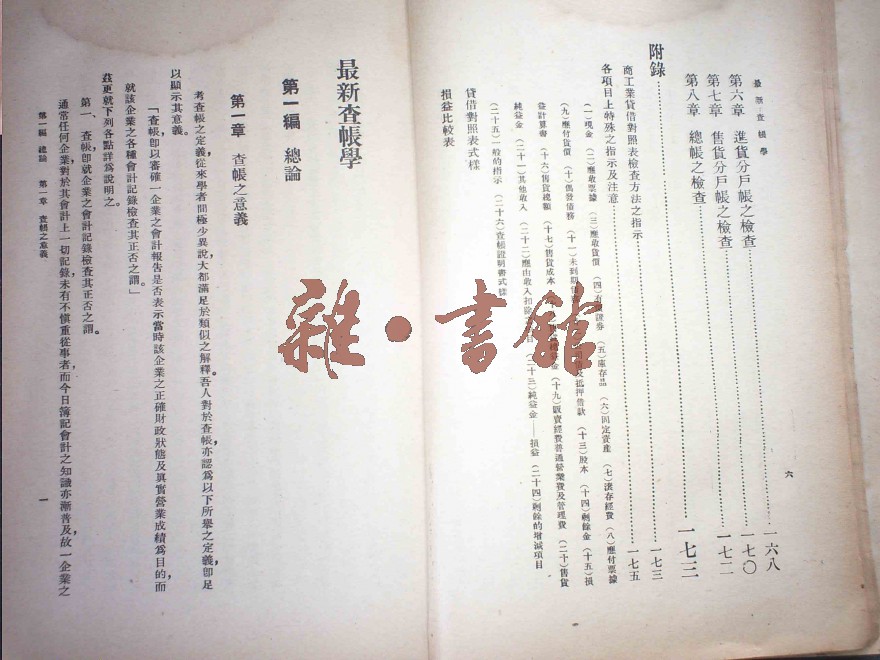 最新查帳學
六
第六章　進貨分戶帳之檢查……一六八
第七章　售貨分戶帳之檢查……一七〇
第八章　總帳之檢查……一七二
附錄……一七三
商工業貸借對照表檢查方法之指示……一七三
各項目上特殊之指示及注意……一七五
（一）現金　（二）應收票據　（三）應收貨價　（四）有　證券　（五）庫存品　（六）固定資產　（七）遞存經費　（八）應付票據
（九）應付貨價　（十）偶發債務　（十一）未到期　及抵押借款　（十三）股本　（十四）剩餘金　（十五）損
益計算書　（十六）售貨總額　（十七）售貨成本　益金　（十九）販賣經費普通營業費及管理費　（二十）售貨
純益金　（二十一）其他收入　（二十二）應由收入扣除　目　（二十三）純益金——損益　（二十四）剩餘的增減項目
（二十五）一般的指示　（二十六）查帳證明書式樣
貸借對照表式樣
損益比較表
最新查帳學
第一編　總論
第一章　查帳之意義
考查帳之定義，從來學者間極少異說，大都滿足於類似之解釋。吾人對於查帳，亦認爲以下所舉之定義，卽足
以顯示其意義。
「查帳，卽以審確一企業之會計報告是否表示當時該企業之正確財政狀態及眞實營業成績爲目的，而
就該企業之各種會計記錄檢查其正否之謂。」
茲更就下列各點詳爲說明之。
第一、查帳卽就企業之會計記錄檢查其正否之謂。
通常任何企業，對於其會計上一切記錄，未有不愼重從事者，而今日簿記會計之知識亦漸普及，故一企業之
第一編　總論　第一章　查帳之意義
一
雜·書館